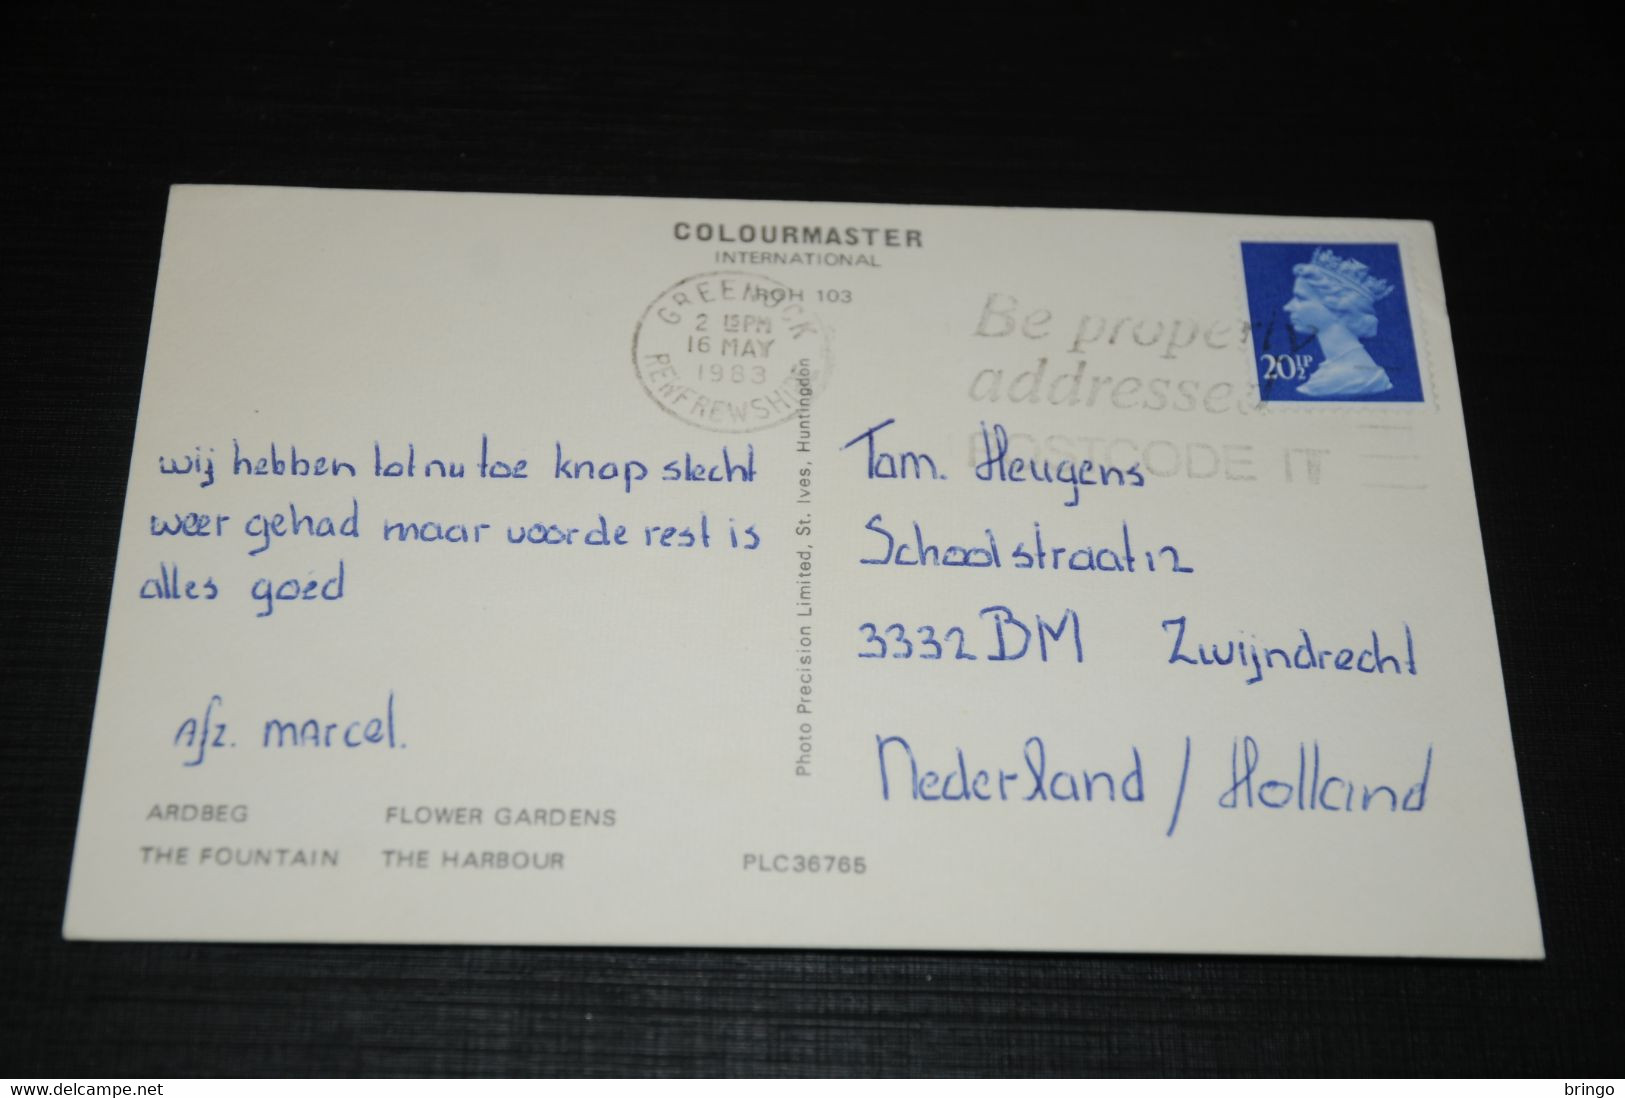 COLOURMASTER
INTERNATIONAL
ROH 103
GREENOCK
2 15PM
16 MAY
1983
RENFREWSHIRE
Be properly
addressed
POSTCODE IT
20½P
wij hebben tot nu toe knap slecht
weer gehad maar voor de rest is
alles goed
Afz. marcel.
Photo Precision Limited, St. Ives, Huntingdon
Tam. Heugens
Schoolstraat 12
3332 BM Zwijndrecht
Nederland / Holland
ARDBEG FLOWER GARDENS
THE FOUNTAIN THE HARBOUR PLC36765
bringo